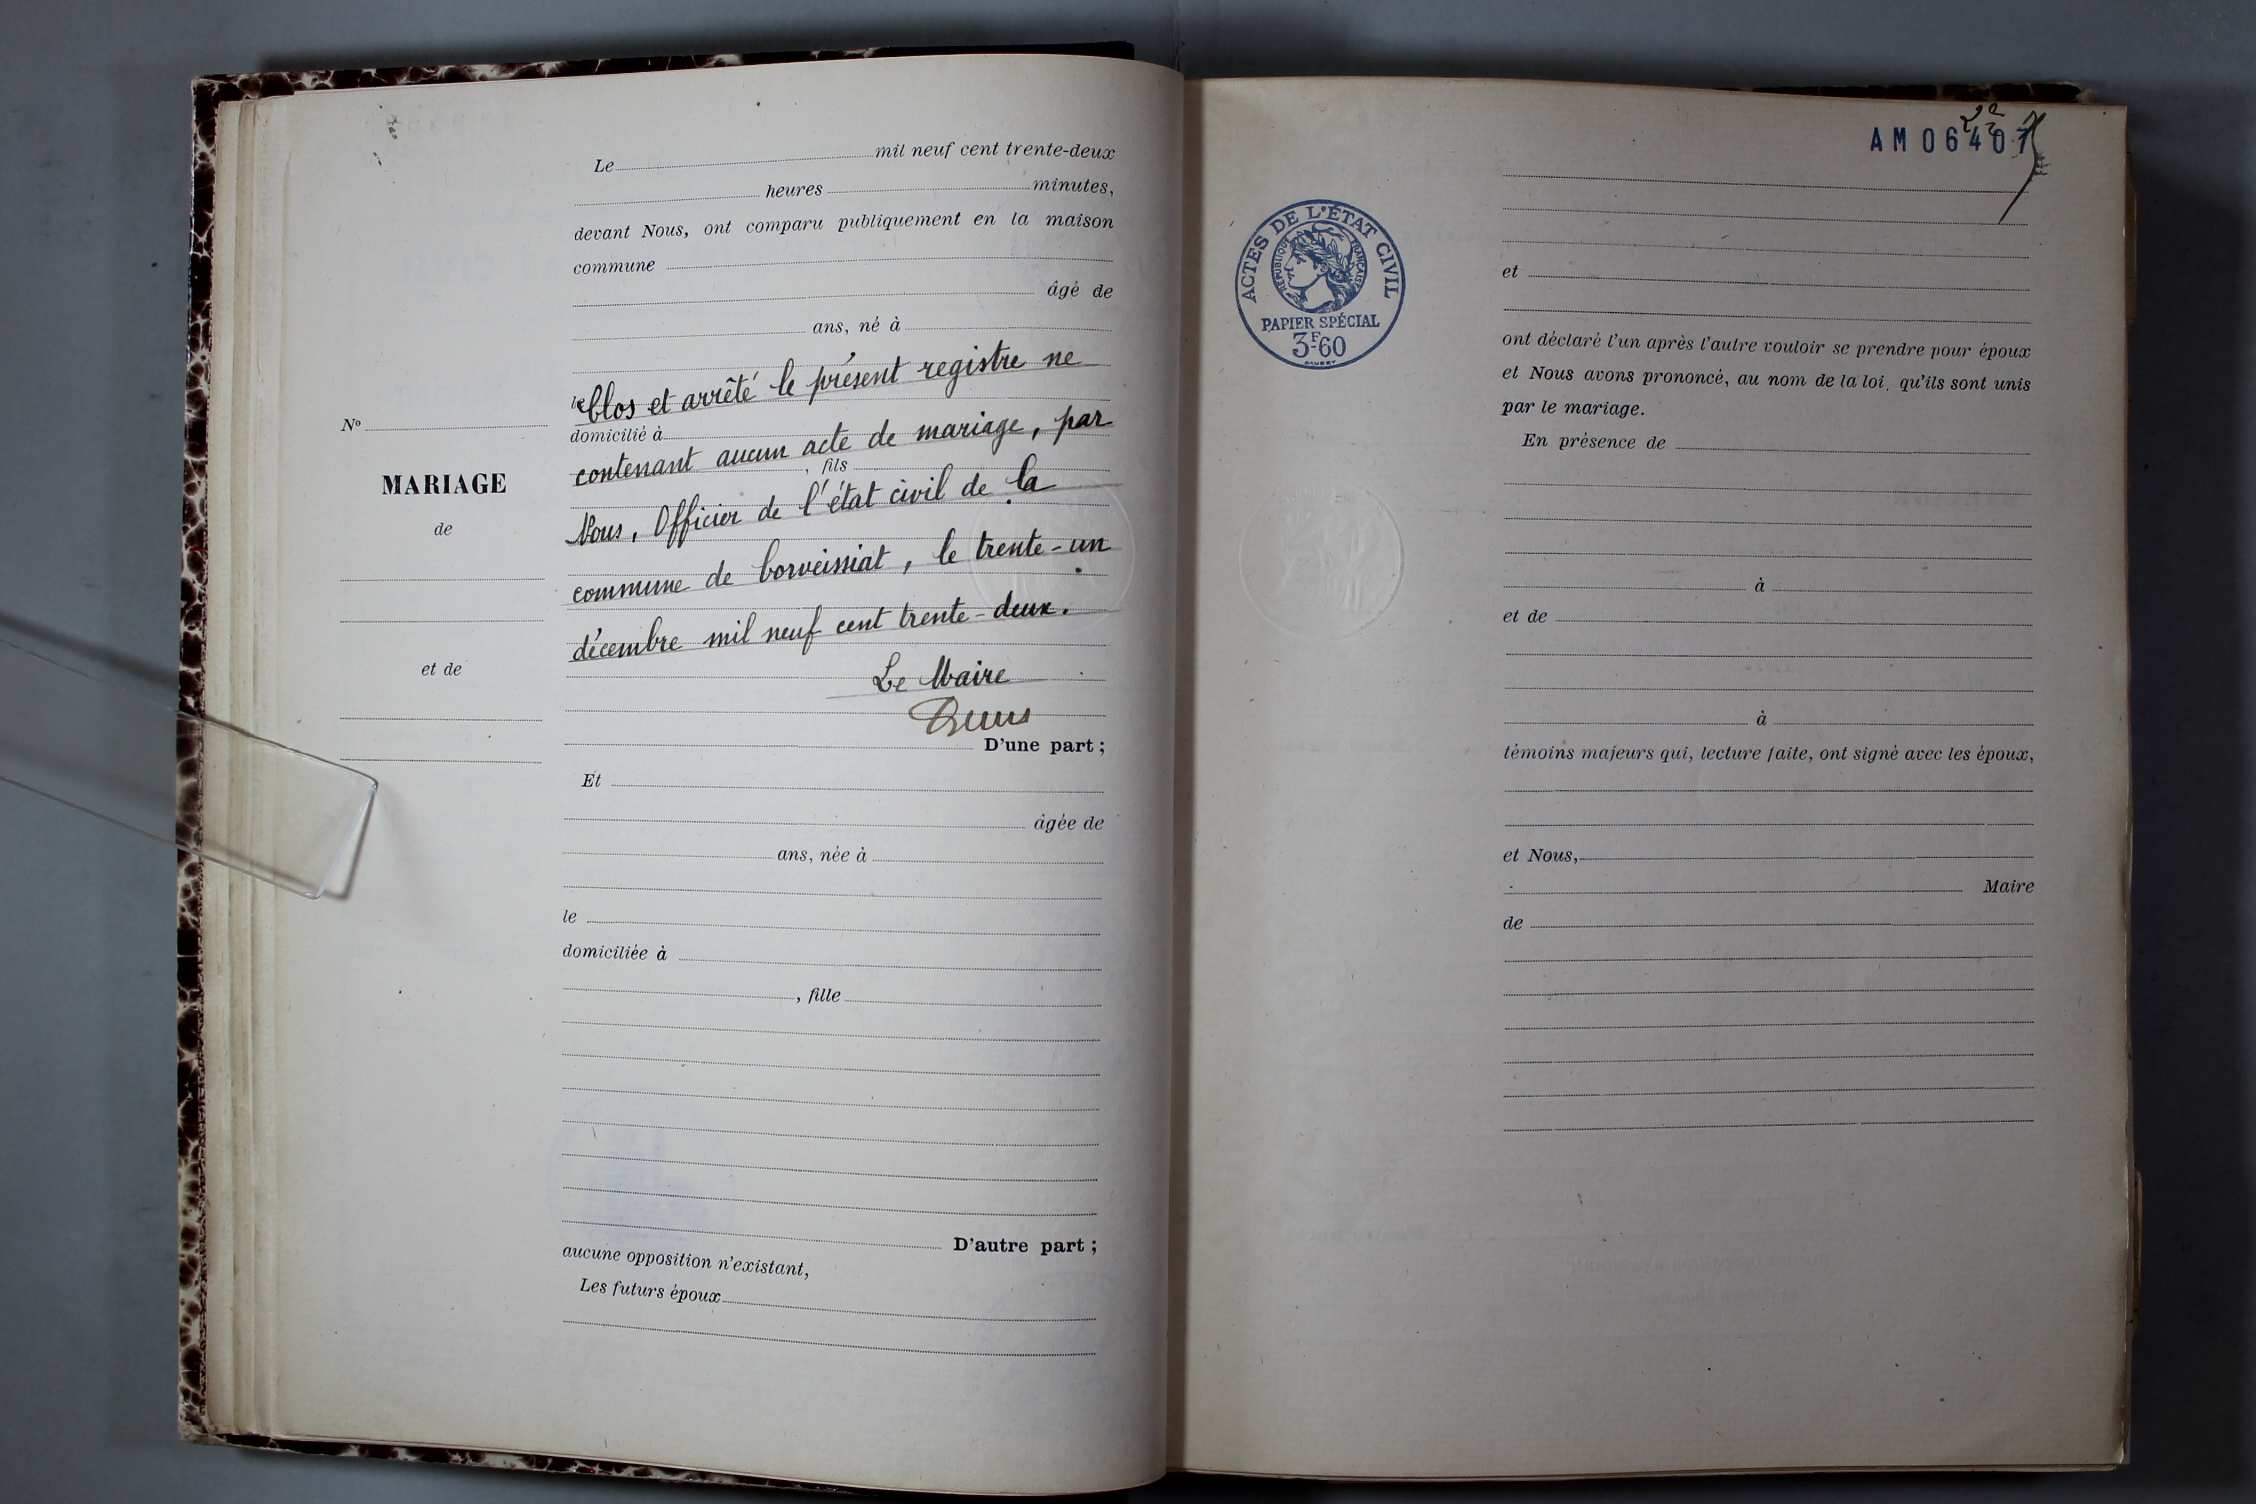 Le mil neuf cent trente-deux
heures minutes,
devant Nous, ont comparu publiquement en la maison
commune
âgé de
ans, né à
le Clos et arrêté le présent registre ne
domicilié à
contenant aucun acte de mariage, par
, fils
Nous, Officier de l'état civil de la
commune de Corveissiat, le trente-un
décembre mil neuf cent trente-deux.
Le Maire
D'une part ;
Et
âgée de
ans, née à
le
domiciliée à
, fille
D'autre part ;
aucune opposition n'existant,
Les futurs époux
No
MARIAGE
de
et de
AM 06407
ACTES DE L'ÉTAT CIVIL
RÉPUBLIQUE FRANÇAISE
PAPIER SPÉCIAL
3F60
et
ont déclaré l'un après l'autre vouloir se prendre pour époux
et Nous avons prononcé, au nom de la loi, qu'ils sont unis
par le mariage.
En présence de
à
et de
à
témoins majeurs qui, lecture faite, ont signé avec les époux,
et Nous,
Maire
de